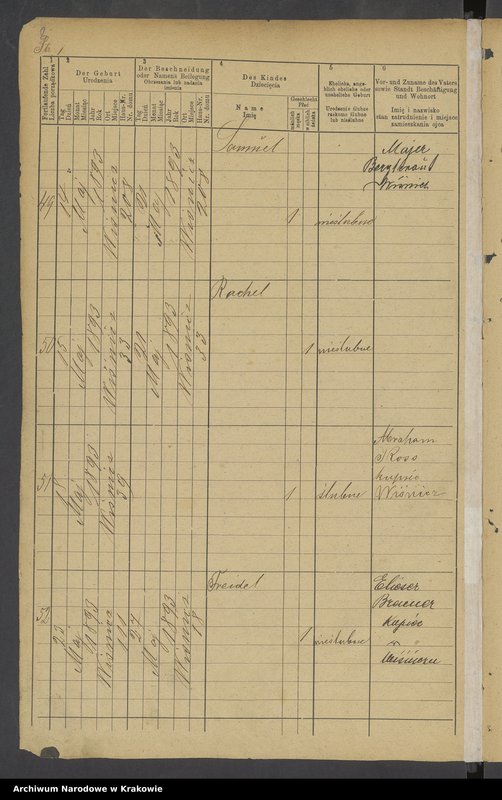 Fortlaufende Zahl
Liczba porządkowa
2
Der Geburt
Urodzenia
Tag
Dzień
Monat
Miesiąc
Jahr
Rok
Ort
Miejsce
Haus-Nr.
Nr. domu
3
Der Beschneidung
oder Namens Beilegung
Obrzezania lub nadania
imienia
Tag
Dzień
Monat
Miesiąc
Jahr
Rok
Ort
Miejsce
Haus-Nr.
Nr. domu
4
Des Kindes
Dziecięcia
Name
Imię
Geschlecht
Płeć
männlich
męska
weiblich
żeńska
5
Ehelich, ange-
blich ehelich oder
unehelich Geburt
Urodzenie ślubne
rzekomo ślubne
lub nieślubne
6
Vor- und Zuname des Vaters
sowie Standt Beschäftigung
und Wohnort
Imię i nazwisko
stan zatrudnienie i miejsce
zamieszkania ojca
49
Maj
1893
Wiśnicz
208
Maj
1893
Wiśnicz
208
Samuel
1
nieślubne
Majer
Wiśnicz
50
15
Maj
1893
Wiśnicz
33
21
Maj
1893
Wiśnicz
33
Rachel
1
nieślubne
51
18
Maj
1893
Wiśnicz
39
1
ślubne
Abraham
Ross
kupiec
Wiśnicz
52
Maj
1893
Wiśnicz
27
Maj
1893
Wiśnicz
18
Freidel
1
nieślubne
Elieser
kupiec
Archiwum Narodowe w Krakowie